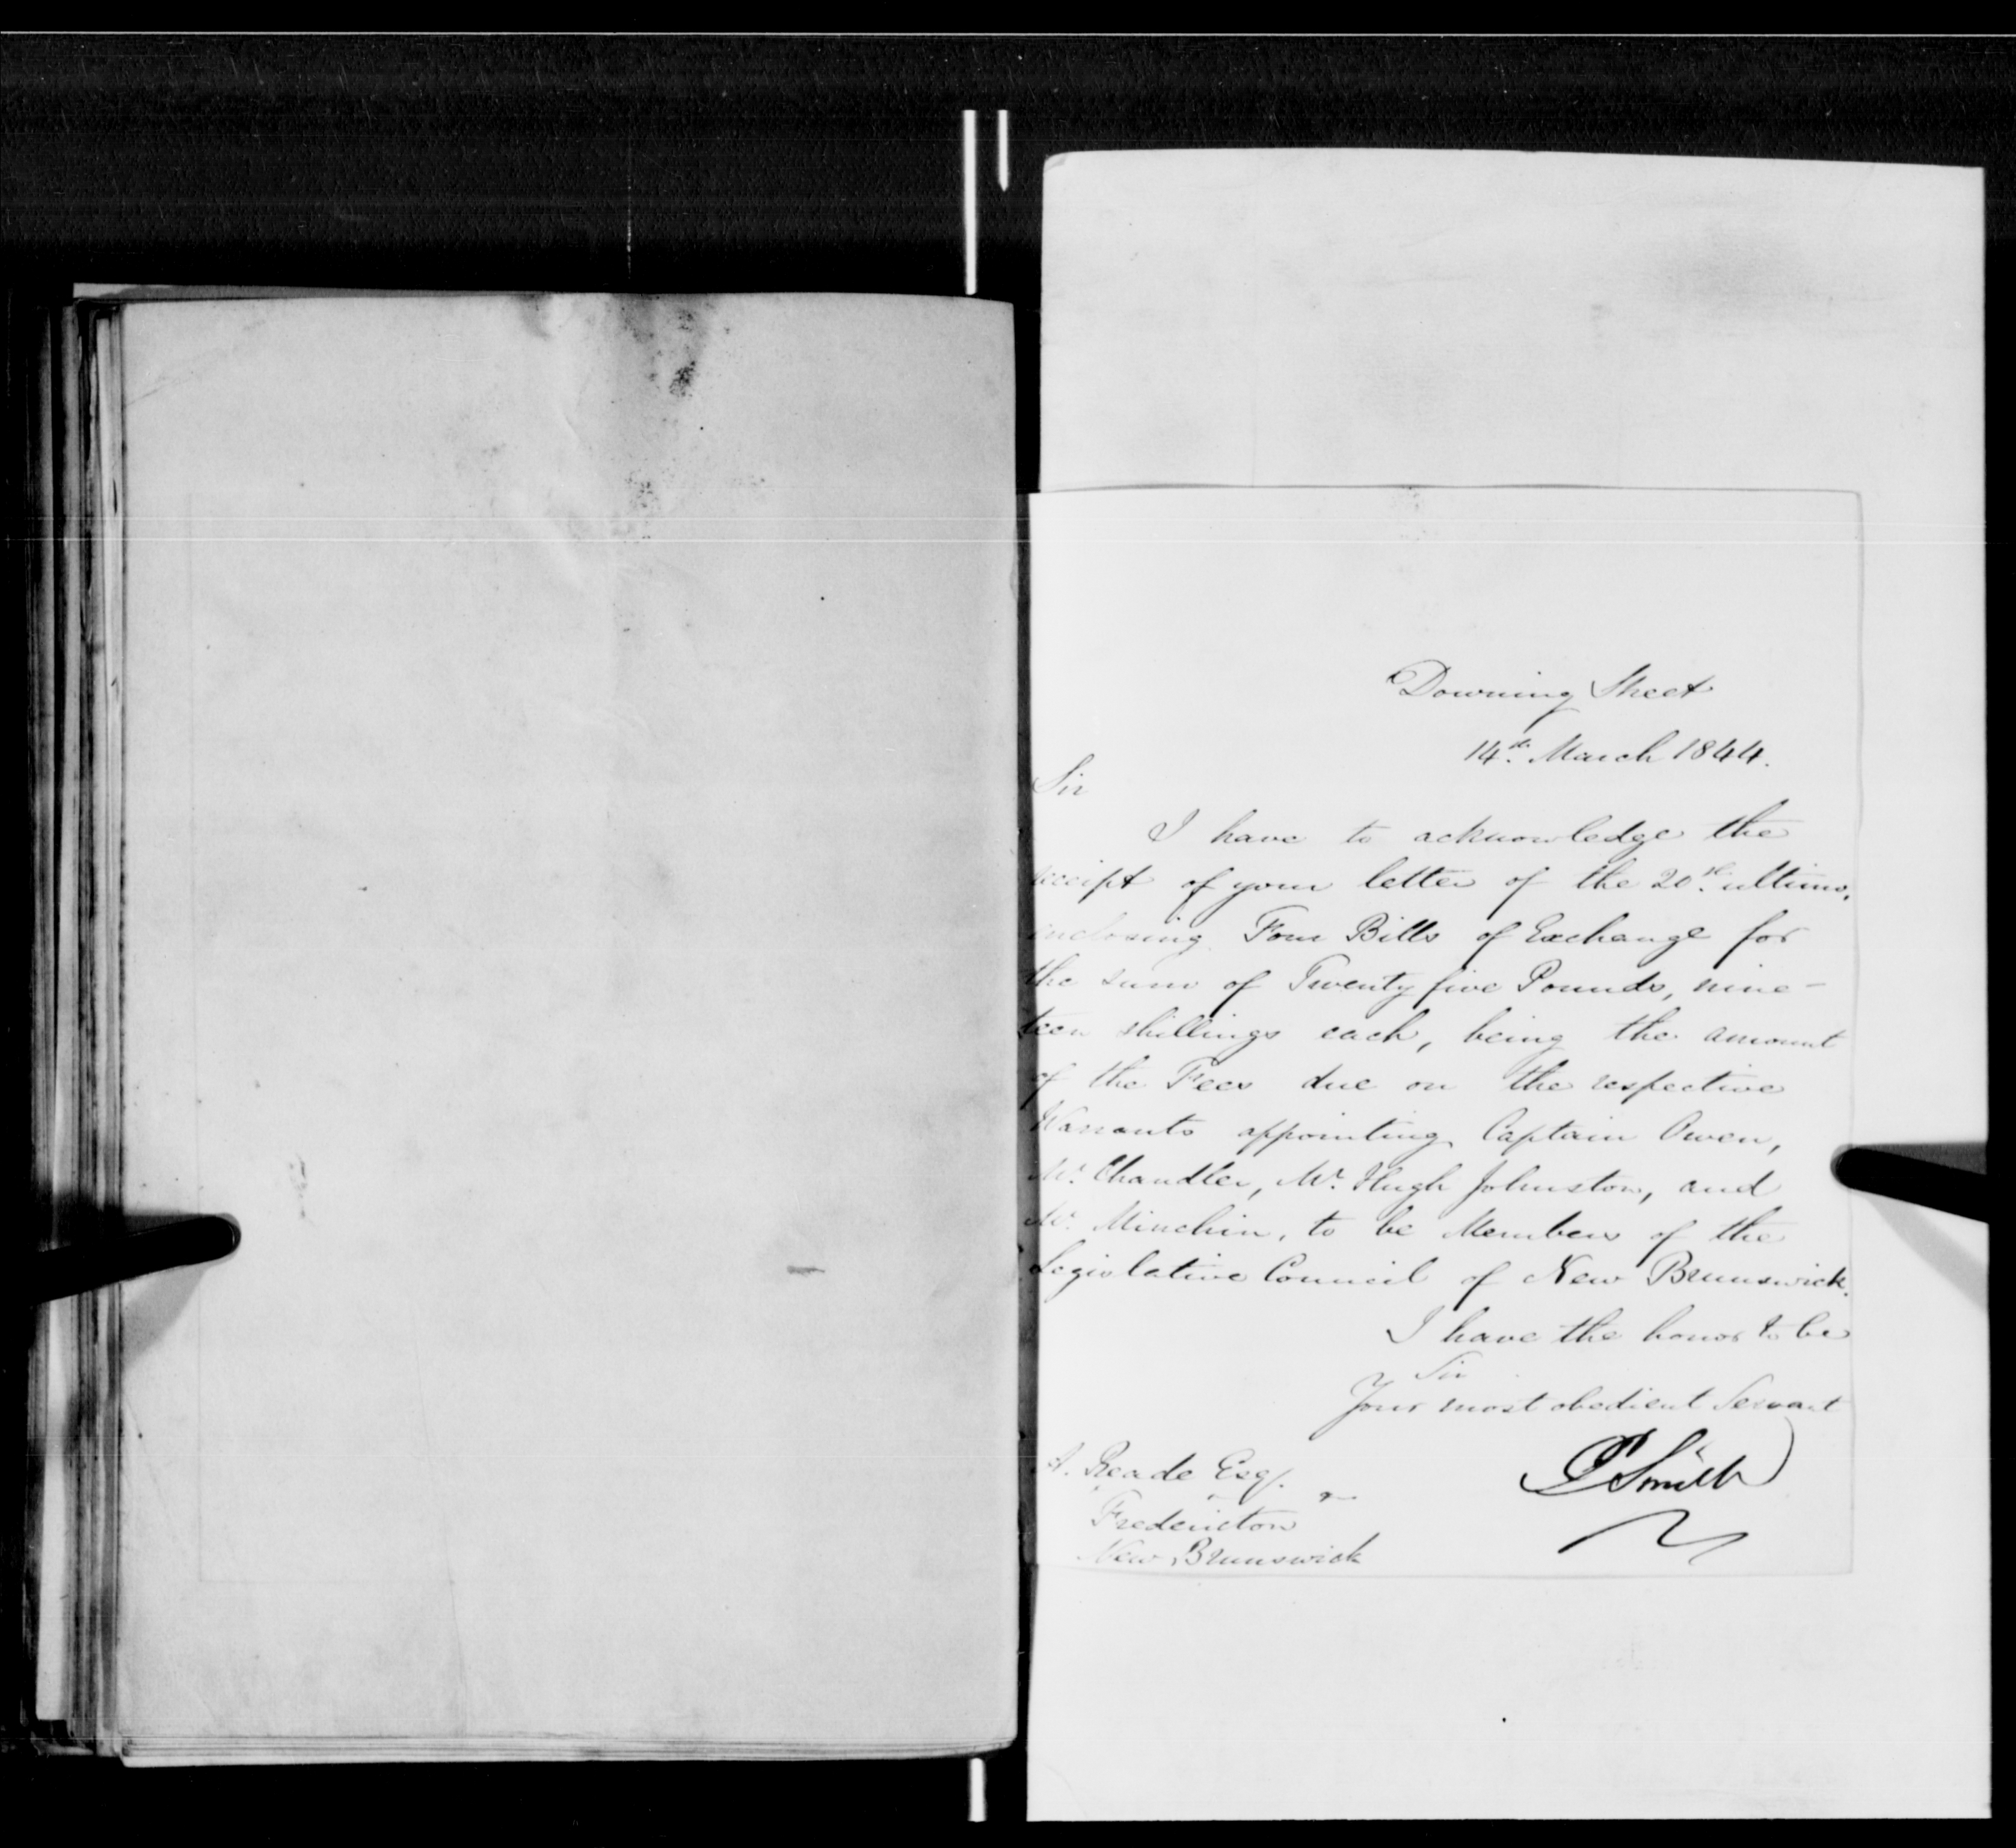 Downing Street
14th. March 1844.
Sir
I have to acknowledge the
receipt of your letter of the 20th. ultimo,
inclosing Four Bills of Exchange for
the sum of Twenty five Pounds, nine-
teen shillings each, being the amount
of the Fees due on the respective
Warrants appointing Captain Owen,
Mr. Chandler, Mr. Hugh Johnston, and
Mr. Minchin, to be Members of the
Legislative Council of New Brunswick.
I have the honor to be
Sir
Your most obedient Servant
P Smith
A. Reade Esq.
Fredericton
New Brunswick